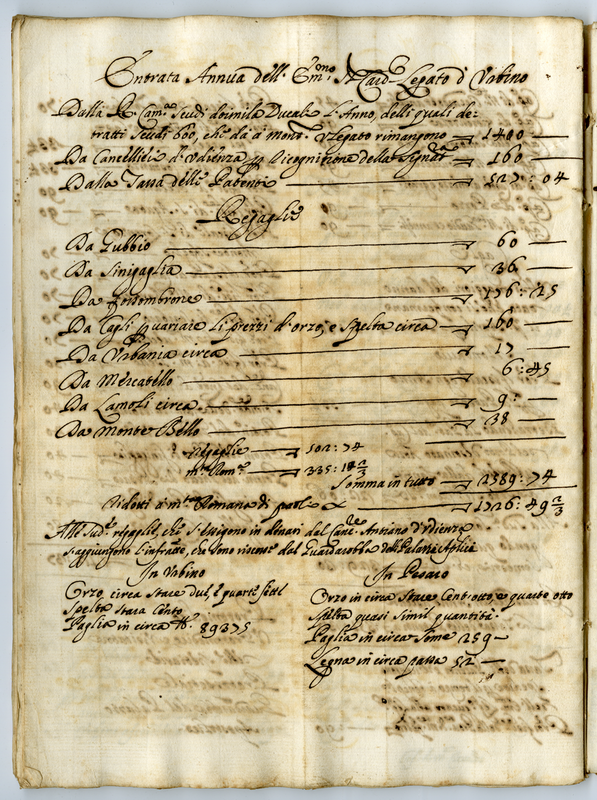 Entrata Annua dell' Em:mo Sr Card: Legato d' Urbino
Dalla R. Cam:a Scudi doimila Ducali l'Anno, delli quali de:
tratti Scudi 600, che dà a Mons:r V.Legato rimangono — 1400 —
Da Cancellieri d' Udienza p Ricognitione della Segnat:ra — 160 —
Dalla Tassa delle Patenti — 527: 04
Regaglie
Da Gubbio — 60 —
Da Sinigaglia — 36 —
Da Fossombrone — 176: 25
Da Cagli p variare li prezzi d' orzo, e spelta circa — 160 —
Da Urbania circa — 17 —
Da Mercatello — 6: 45
Da Lamoli circa — 9: —
Da Monte Bello — 38 —
Regaglie — 502: 74
m:ta Rom:a — 335: 18 2/3
Somma in tutto — 2589: 74
Ridotti a m:ta Romana di paoli X — 1726: 49 2/3
Alle sud:e regaglie, che s' essigono in denari dal Canc:re Antiano d' Udienza
s'aggiungono l'infratte, che sono riscosse dal Guardarobba delli Palazzi Aplici
In Urbino
Orzo, circa Stare dul, e quarti sette
Spelta stara Cento
Paglia in circa lb: 89375
In Pesaro
Orzo in circa Stare Cent: otto, e quarte otto
Spelta quasi simil quantità
Paglia in circa Some 259 —
Legna in circa passa 52 —